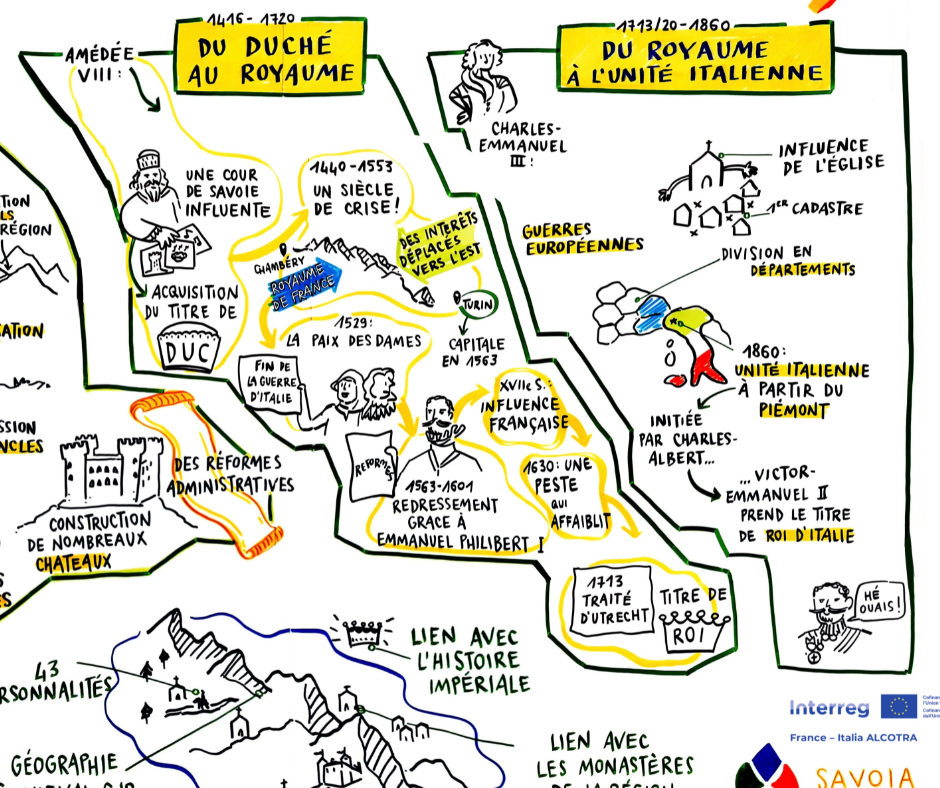 1416 - 1720
DU DUCHÉ
AU ROYAUME
AMÉDÉE
VIII :
UNE COUR
DE SAVOIE
INFLUENTE
ACQUISITION
DU TITRE DE
DUC
1440 - 1553
UN SIÈCLE
DE CRISE !
DES INTERÊTS
DÉPLACÉS
VERS L'EST
CHAMBÉRY
ROYAUME
DE FRANCE
TURIN
CAPITALE
EN 1563
1529 :
LA PAIX DES DAMES
FIN DE
LA GUERRE
D'ITALIE
REFORMES
1563-1601
REDRESSEMENT
GRACE À
EMMANUEL PHILIBERT I
XVIIe S. :
INFLUENCE
FRANÇAISE
1630 : UNE
PESTE
QUI
AFFAIBLIT
1713
TRAITÉ
D'UTRECHT
TITRE DE
ROI
1713/20 - 1860
DU ROYAUME
À L'UNITÉ ITALIENNE
CHARLES-
EMMANUEL
III :
GUERRES
EUROPÉENNES
INFLUENCE
DE L'ÉGLISE
1ER CADASTRE
DIVISION EN
DÉPARTEMENTS
1860 :
UNITÉ ITALIENNE
À PARTIR DU
PIÉMONT
INITIÉE
PAR CHARLES-
ALBERT...
...VICTOR-
EMMANUEL II
PREND LE TITRE
DE ROI D'ITALIE
HÉ
OUAIS !
RÉGION
DES RÉFORMES
ADMINISTRATIVES
CONSTRUCTION
DE NOMBREUX
CHATEAUX
43
RSONNALITÉS
GÉOGRAPHIE
LIEN AVEC
L'HISTOIRE
IMPÉRIALE
LIEN AVEC
LES MONASTÈRES
DE LA RÉGION
Interreg
France – Italia ALCOTRA
SAVOIA